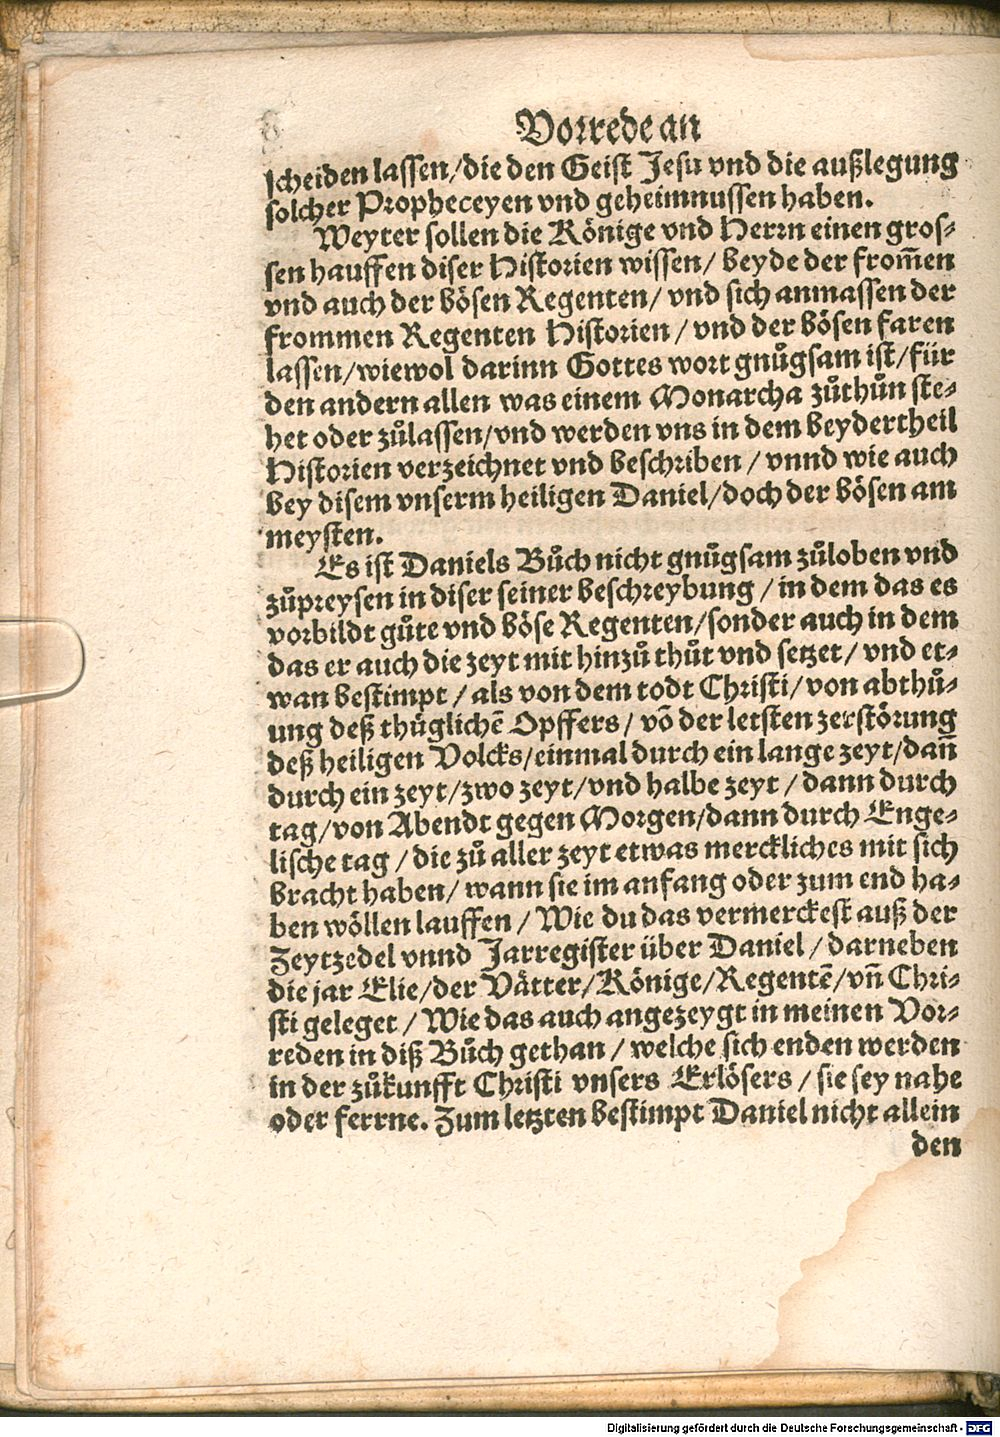 Vorrede an
scheiden lassen/die den Geist Jesu vnd die außlegung
solcher Propheceyen vnd geheimnussen haben.
Weyter sollen die Könige vnd Herrn einen gros-
sen hauffen diser Historien wissen/ beyde der from̄en
vnd auch der bösen Regenten/ vnd sich anmassen der
frommen Regenten Historien / vnd der bösen faren
lassen/wiewol darinn Gottes wort gnůgsam ist/für
den andern allen was einem Monarcha zůthůn ste-
het oder zůlassen/vnd werden vns in dem beydertheil
Historien verzeichnet vnd beschriben / vnnd wie auch
bey disem vnserm heiligen Daniel/doch der bösen am
meysten.
Es ist Daniels Bůch nicht gnůgsam zůloben vnd
zůpreysen in diser seiner beschreybung / in dem das es
vorbildt gůte vnd böse Regenten/sonder auch in dem
das er auch die zeyt mit hinzů thůt vnd setzet/ vnd et-
wan bestimpt / als von dem todt Christi/von abthů-
ung deß thůglichē Opffers/ vō der letsten zerstörung
deß heiligen Volcks/einmal durch ein lange zeyt/dan̄
durch ein zeyt/zwo zeyt/vnd halbe zeyt / dann durch
tag/von Abendt gegen Morgen/dann durch Enge-
lische tag / die zů aller zeyt etwas merckliches mit sich
bracht haben/ wann sie im anfang oder zum end ha-
ben wöllen lauffen / Wie du das vermerckest auß der
Zeytzedel vnnd Jarregister über Daniel / darneben
die jar Elie/der Vätter/Könige/Regentē/vn̄ Chri-
sti geleget / Wie das auch angezeygt in meinen Vor-
reden in diß Bůch gethan / welche sich enden werden
in der zůkunfft Christi vnsers Erlösers / sie sey nahe
oder ferrne. Zum letzten bestimpt Daniel nicht allein
den
Digitalisierung gefördert durch die Deutsche Forschungsgemeinschaft - DFG